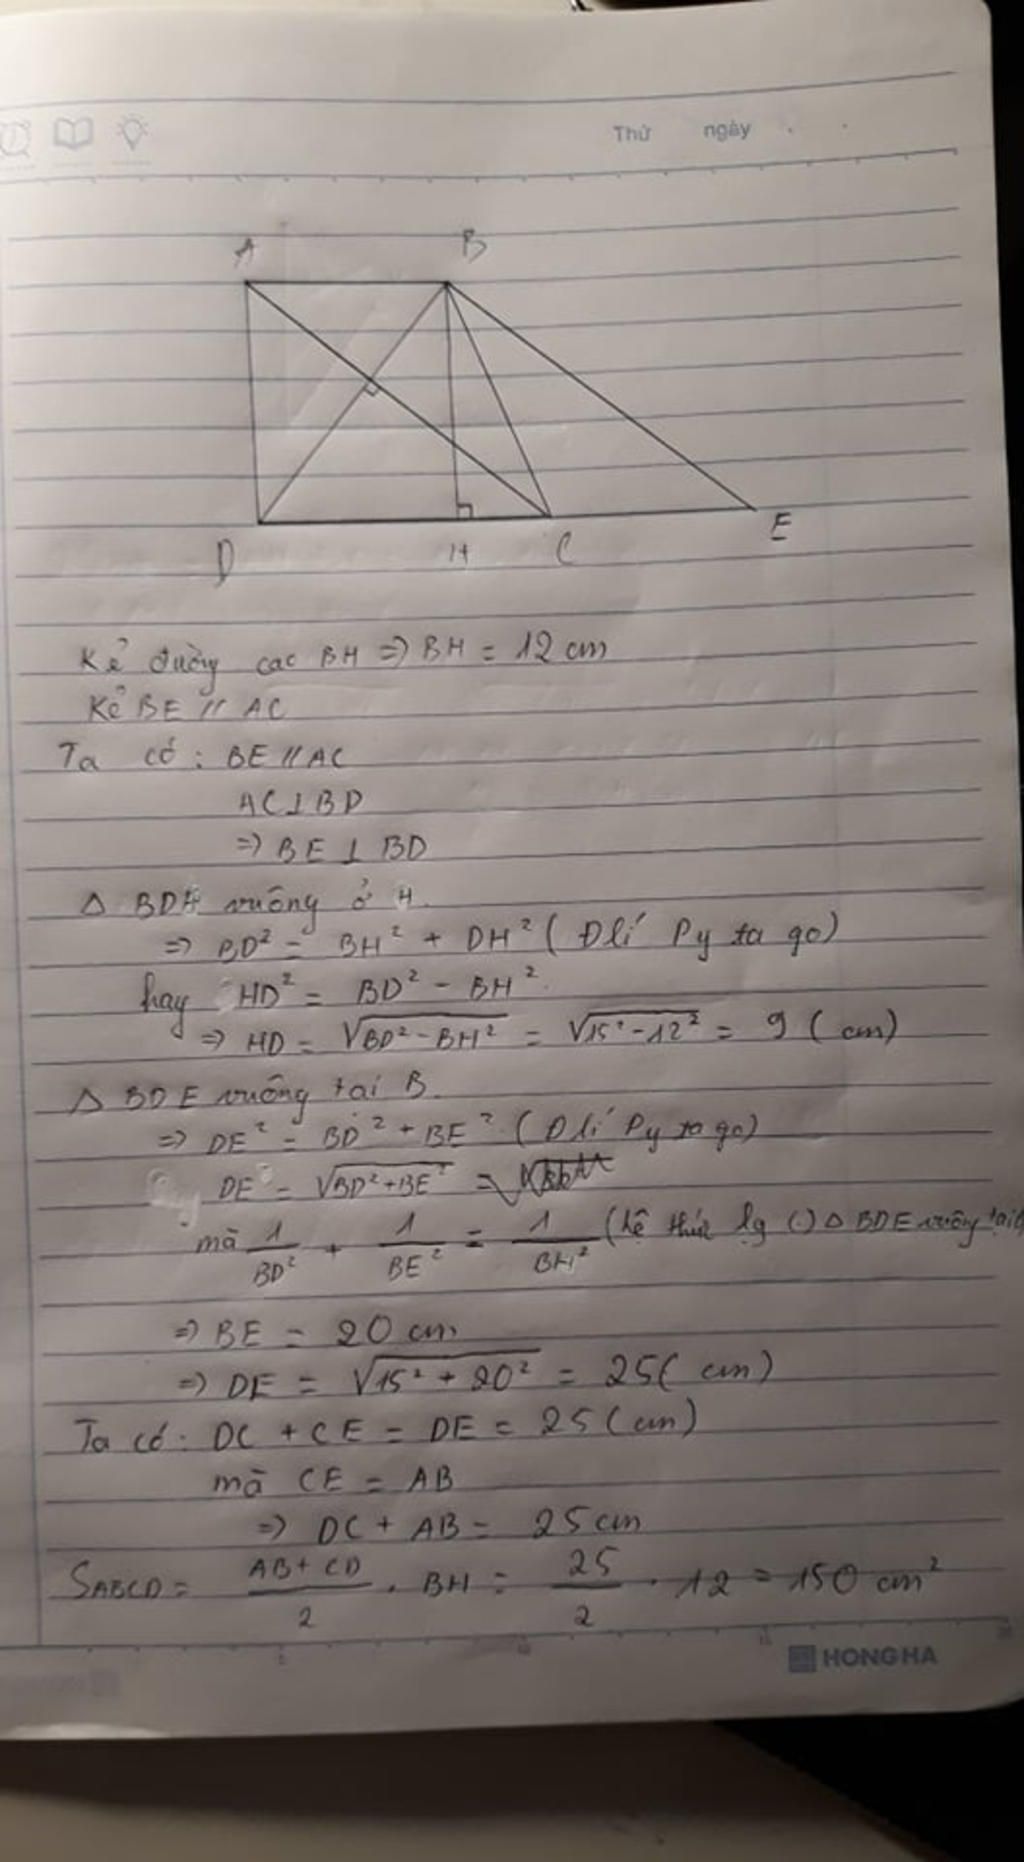 Thứ ngày
A B
D H C E
Kẻ đường cao BH => BH = 12 cm
Kẻ BE // AC
Ta có : BE // AC
AC ⊥ BD
=> BE ⊥ BD
Δ BDH vuông ở H.
=> BD² = BH² + DH² ( Đlí Py ta go)
hay HD² = BD² - BH²
=> HD = √BD² - BH² = √15² - 12² = 9 ( cm)
Δ BDE vuông tại B.
=> DE² = BD² + BE² ( Đlí Py ta go)
DE = √BD² + BE² =
mà 1/BD² + 1/BE² = 1/BH² (hệ thức lg (.) Δ BDE vuông tại
=> BE = 20 cm
=> DE = √15² + 20² = 25( cm)
Ta có : DC + CE = DE = 25 (cm)
mà CE = AB
=> DC + AB = 25 cm
SABCD = AB + CD/2 . BH = 25/2 . 12 = 150 cm²
HONG HA